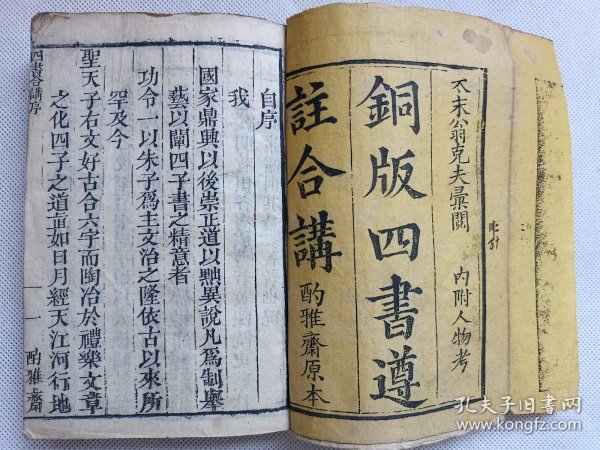 太末翁克夫彙閱 內附人物考
銅版四書遵
註合講 酌雅齋原本
自序
我
國家鼎興以後崇正道以黜異說凡爲制舉
藝以闡四子書之精意者
功令一以朱子爲主文治之隆依古以來所
罕及今
聖天子右文好古合六宇而陶冶於禮樂文章
之化四子之道直如日月經天江河行地
四書合講序
一
酌雅齋
孔夫子旧书网
www.kongfz.com